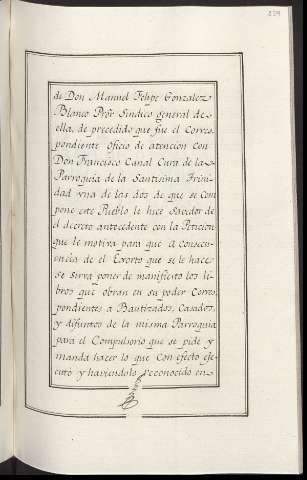 de Don Manuel Felipe Gonzalez
Blanco Pror Sindico general de
ella, de precedido que fue el Corres
pondiente oficio de atencion con
Don Francisco Canal Cura de la
Parroquia de la Santisima Trini
dad vna de las dos de que se com
pone este Pueblo le hice Savedor de
el decreto antecedente con la Peticion
que le motiva para que a consecu
encia de el Exorto que se le hace
se sirva poner de manifiesto los li
bros que obran en su poder Corres
pondientes a Bautizados, Casados,
y difuntos de la misma Parroquia
para el Compulsorio que se pide y
manda hacer lo que Con efecto eje
cutó y haviendolo reconocido en